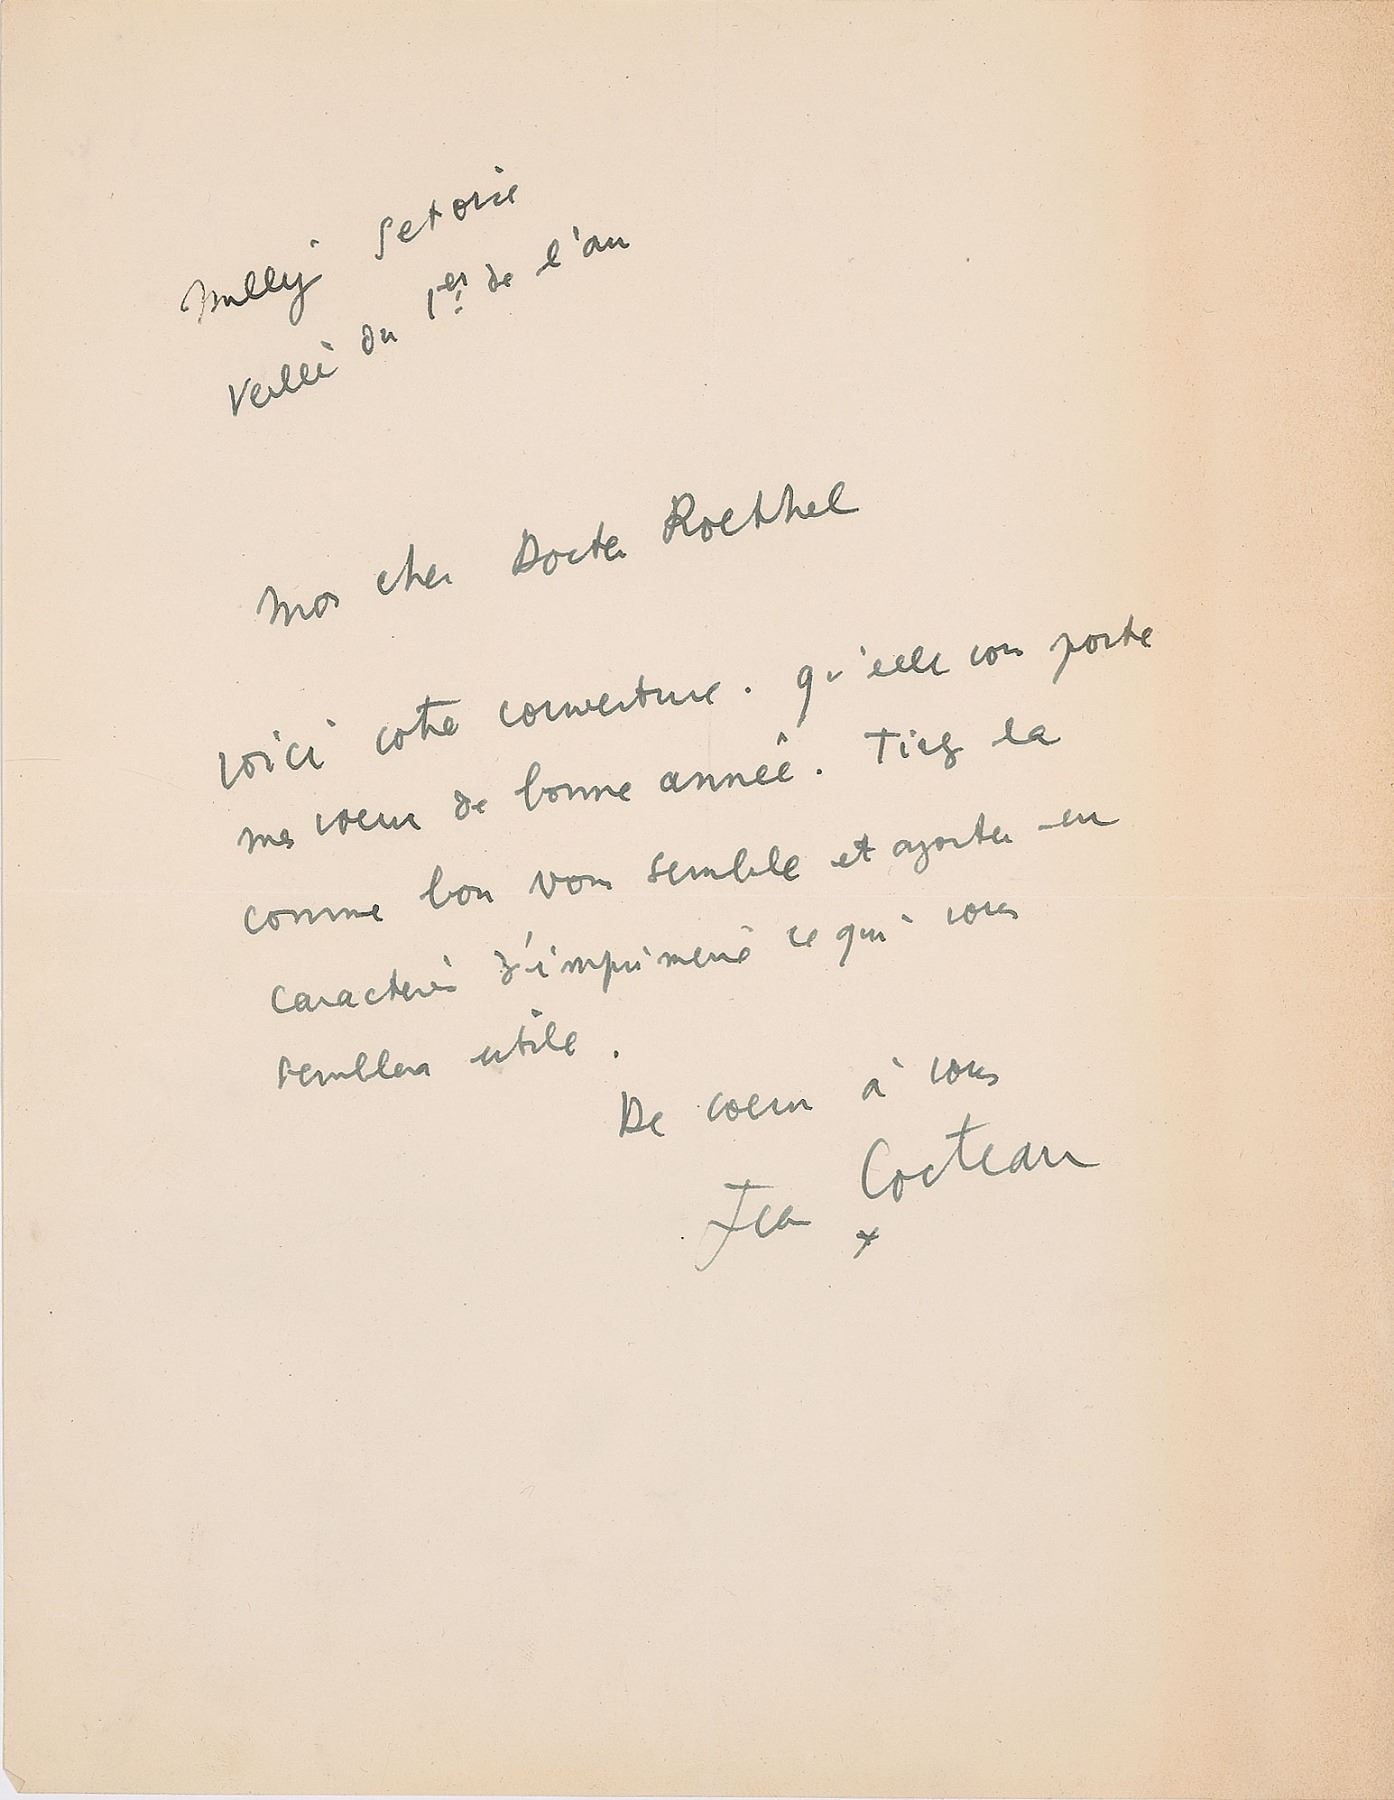 Milly Set Oise
Veille du 1er de l'an
Mon cher Docteur Roethel
Voici votre couverture. qu'elle vous porte
mes voeux de bonne année. Tirez la
comme bon vous semble et ajoutez en
caractères d'imprimerie ce qui vous
semblera utile.
De coeur à vous
Jean Cocteau